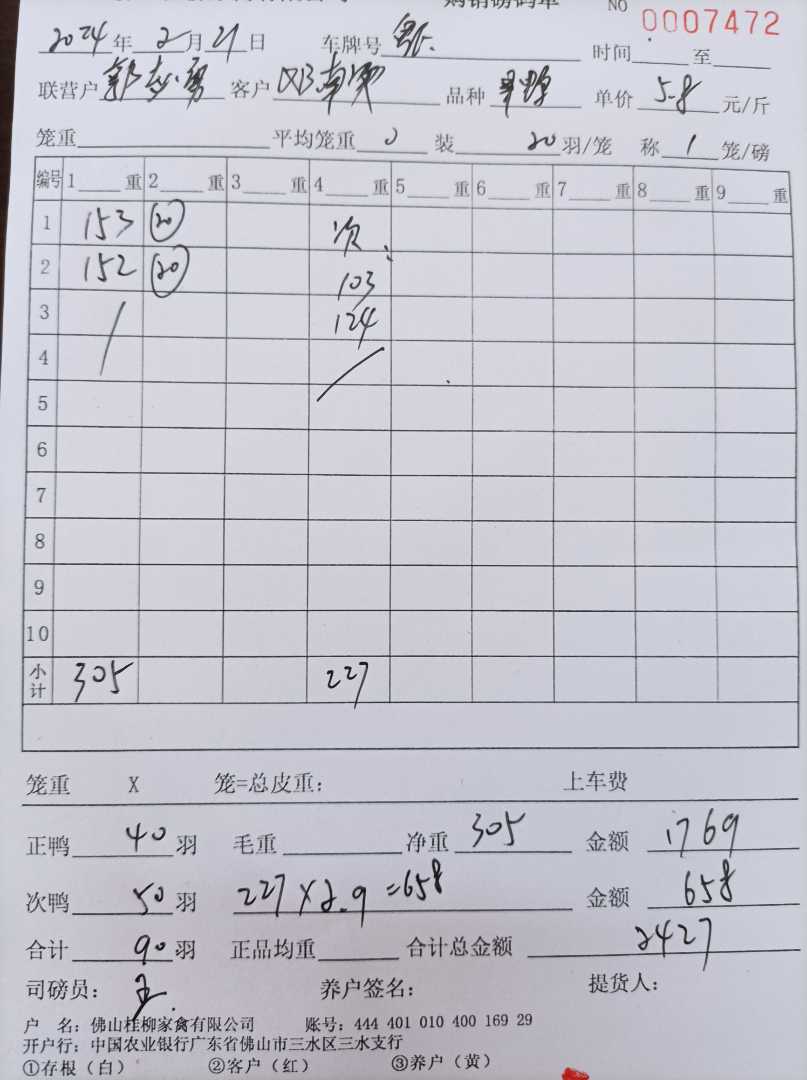 购销磅码单 NO 0007472
2024年2月21日 车牌号 时间 至
联营户 郭志勇 客户 品种 单价 5.8 元/斤
笼重 平均笼重 0 装 20 羽/笼 称 1 笼/磅
编号 1 重 2 重 3 重 4 重 5 重 6 重 7 重 8 重 9 重
1 153 20 次:
2 152 20 103
3 / 124
4 /
5
6
7
8
9
10
小计 305 227
笼重 X 笼=总皮重: 上车费
正鸭 40 羽 毛重 净重 305 金额 1769
次鸭 50 羽 227×2.9=658 金额 658
合计 90 羽 正品均重 合计总金额 2427
司磅员: 养户签名: 提货人:
户 名: 佛山桂柳家禽有限公司 账号: 444 401 010 400 169 29
开户行: 中国农业银行广东省佛山市三水区三水支行
①存根（白） ②客户（红） ③养户（黄）